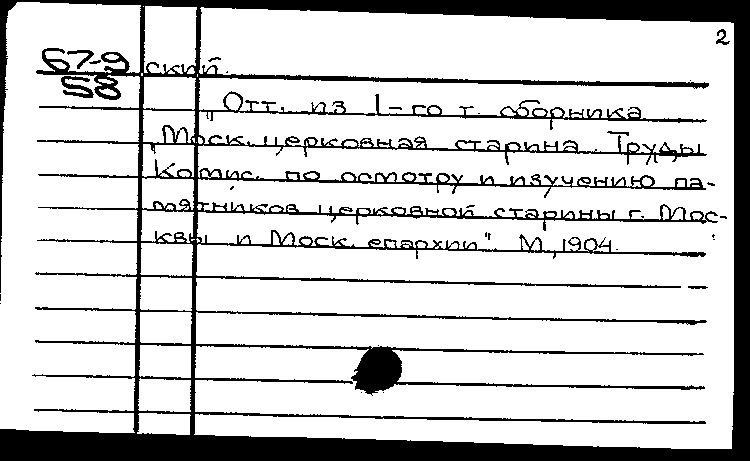 2
67-9
58
ский.
„Отт. из I-го т. сборника
„Моск. церковная старина. Труды
Комис. по осмотру и изучению па-
мятников церковной старины г. Мос-
квы и Моск. епархии". М., 1904.